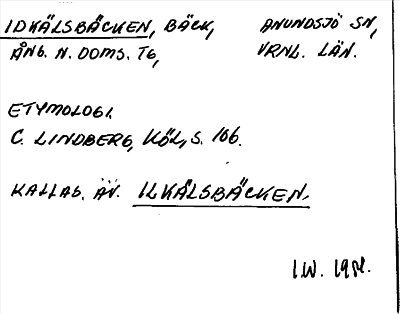 IDKÄLSBÄCKEN, BÄCK, ANUNDSJÖ SN,
ÅNG. N. DOMS. TG, VRNL. LÄN.
ETYMOLOGI.
C. LINDBERG, KÖL, S. 166.
KALLAS. ÄV. ILKÄLSBÄCKEN.
I.W.